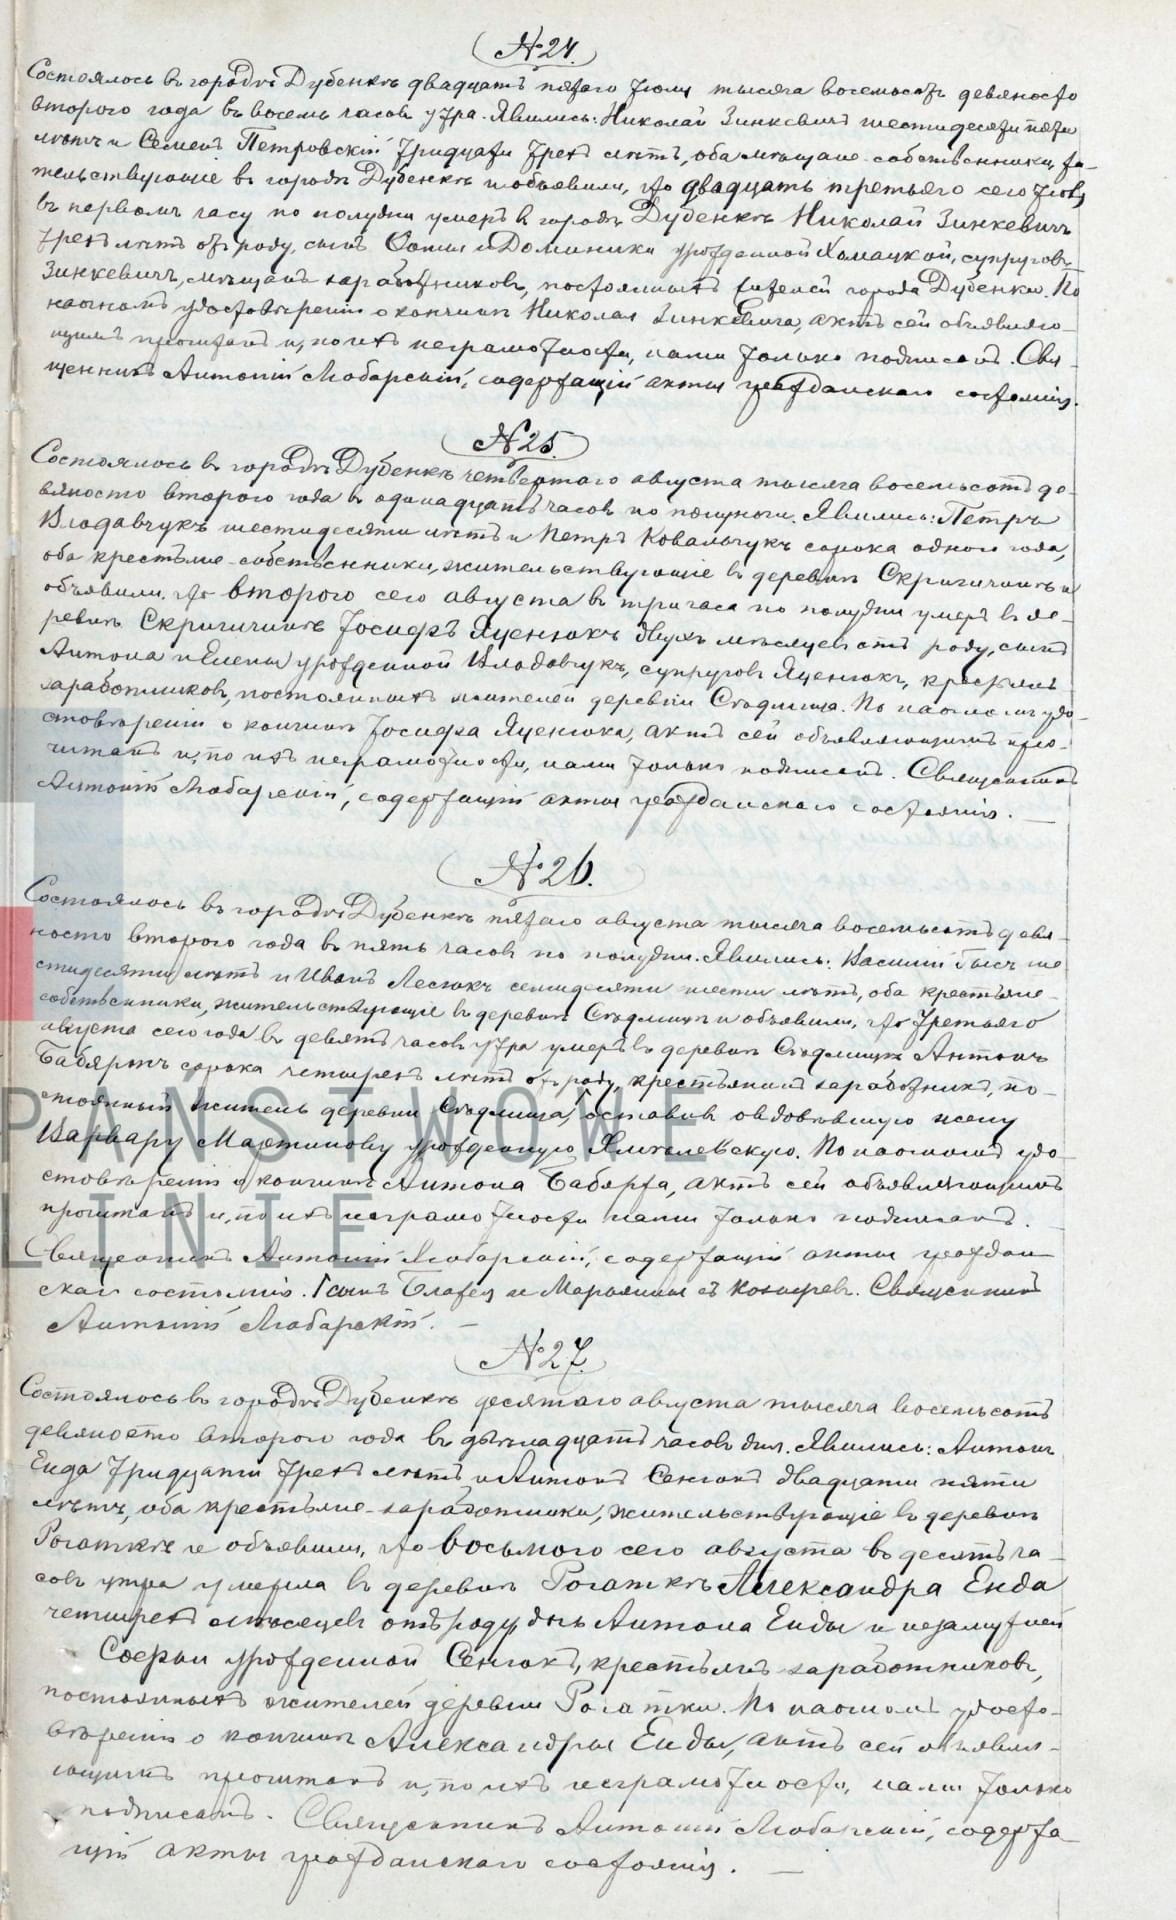 № 24.
Состоялось въ городѣ Дубенкѣ двадцать пятаго Іюля тысяча восемьсотъ девяносто
второго года въ восемь часовъ утра. Явились: Николай Зинкевичъ шестидесяти пяти
лѣтъ и Семенъ Петровскій тридцати трехъ лѣтъ, оба мѣщане-собственники, жи-
тельствующіе въ городѣ Дубенкѣ и объявили, что двадцать третьяго сего Іюля
въ первомъ часу по полудни умеръ въ городѣ Дубенкѣ Николай Зинкевичъ
трехъ лѣтъ отъ роду, сынъ и Доминики урожденной Хомацкой, супруговъ
Зинкевичъ, мѣщанъ заработниковъ, постоянныхъ жителей города Дубенки. По
наочномъ удостовѣреніи о кончинѣ Николая Зинкевича, актъ сей объявляю-
щимъ прочитанъ и, по ихъ неграмотности, нами только подписанъ. Свя-
щенникъ Антоній Лобарскій, содержащій акты гражданскаго состоянія.
№ 25.
Состоялось въ городѣ Дубенкѣ четвертаго августа тысяча восемьсотъ де-
вяносто второго года въ одинадцать часовъ по полуночи. Явились: Петръ
Влодавчукъ шестидесяти лѣтъ и Петръ Ковальчукъ сорока одного года,
оба крестьяне-собственники, жительствующіе въ деревнѣ Скригичинѣ и
объявили, что второго сего августа въ три часа по полудни умеръ въ де-
ревнѣ Скригичинѣ Іосифъ Яценюкъ двухъ мѣсяцевъ отъ роду, сынъ
Антона и Елены урожденной Влодавчукъ, супруговъ Яценюкъ, крестьянъ
заработниковъ, постоянныхъ жителей деревни Стдлища. По наочномъ удо-
стовѣреніи о кончинѣ Іосифа Яценюка, актъ сей объявляющимъ про-
читанъ и, по ихъ неграмотности, нами только подписанъ. Священникъ
Антоній Лобарскій, содержащій акты гражданскаго состоянія.
№ 26.
Состоялось въ городѣ Дубенкѣ пятаго августа тысяча восемьсотъ девя-
носто второго года въ пять часовъ по полудни. Явились: Василій Гысъ ше-
стидесяти лѣтъ и Иванъ Лесюкъ семидесяти шести лѣтъ, оба крестьяне-
собственники, жительствующіе въ деревнѣ Сѣдлищѣ и объявили, что третьяго
августа сего года въ девять часовъ утра умеръ въ деревнѣ Сѣдлищѣ Антонъ
Бабяржъ сорока четырехъ лѣтъ отъ роду, крестьянинъ заработникъ, по-
стоянный житель деревни Сѣдлища, оставивъ овдовѣвшую жену
Варвару Мартинову урожденную Хмѣлевскую. По наочномъ удо-
стовѣреніи о кончинѣ Антона Бабяржа, актъ сей объявляющимъ
прочитанъ и, по ихъ неграмотности нами только подписанъ.
Священникъ Антоній Лобарскій, содержащій акты граждан-
скаго состоянія. Сынъ Блажея и Маріанны съ Козыревъ. Священникъ
Антоній Лобарскій.
№ 27.
Состоялось въ городѣ Дубенкѣ десятаго августа тысяча восемьсотъ
девяносто второго года въ двѣнадцать часовъ дня. Явились: Антонъ
Енда тридцати трехъ лѣтъ и Антонъ Сенюкъ двадцати пяти
лѣтъ, оба крестьяне-заработники, жительствующіе въ деревнѣ
Рогаткѣ и объявили, что восьмого сего августа въ десять ча-
совъ утра умерла въ деревнѣ Рогаткѣ Александра Енда
четырехъ мѣсяцевъ отъ роду, дочь Антона Енды и незамужней
Софьи урожденной Сенюкъ, крестьянъ заработниковъ,
постоянныхъ жителей деревни Рогатки. По наочномъ удосто-
вѣреніи о кончинѣ Александры Енды, актъ сей объявля-
ющимъ прочитанъ и, по ихъ неграмотности, нами только
подписанъ. Священникъ Антоній Лобарскій, содержа-
щій акты гражданскаго состоянія.
PAŃSTWOWE
LINIE